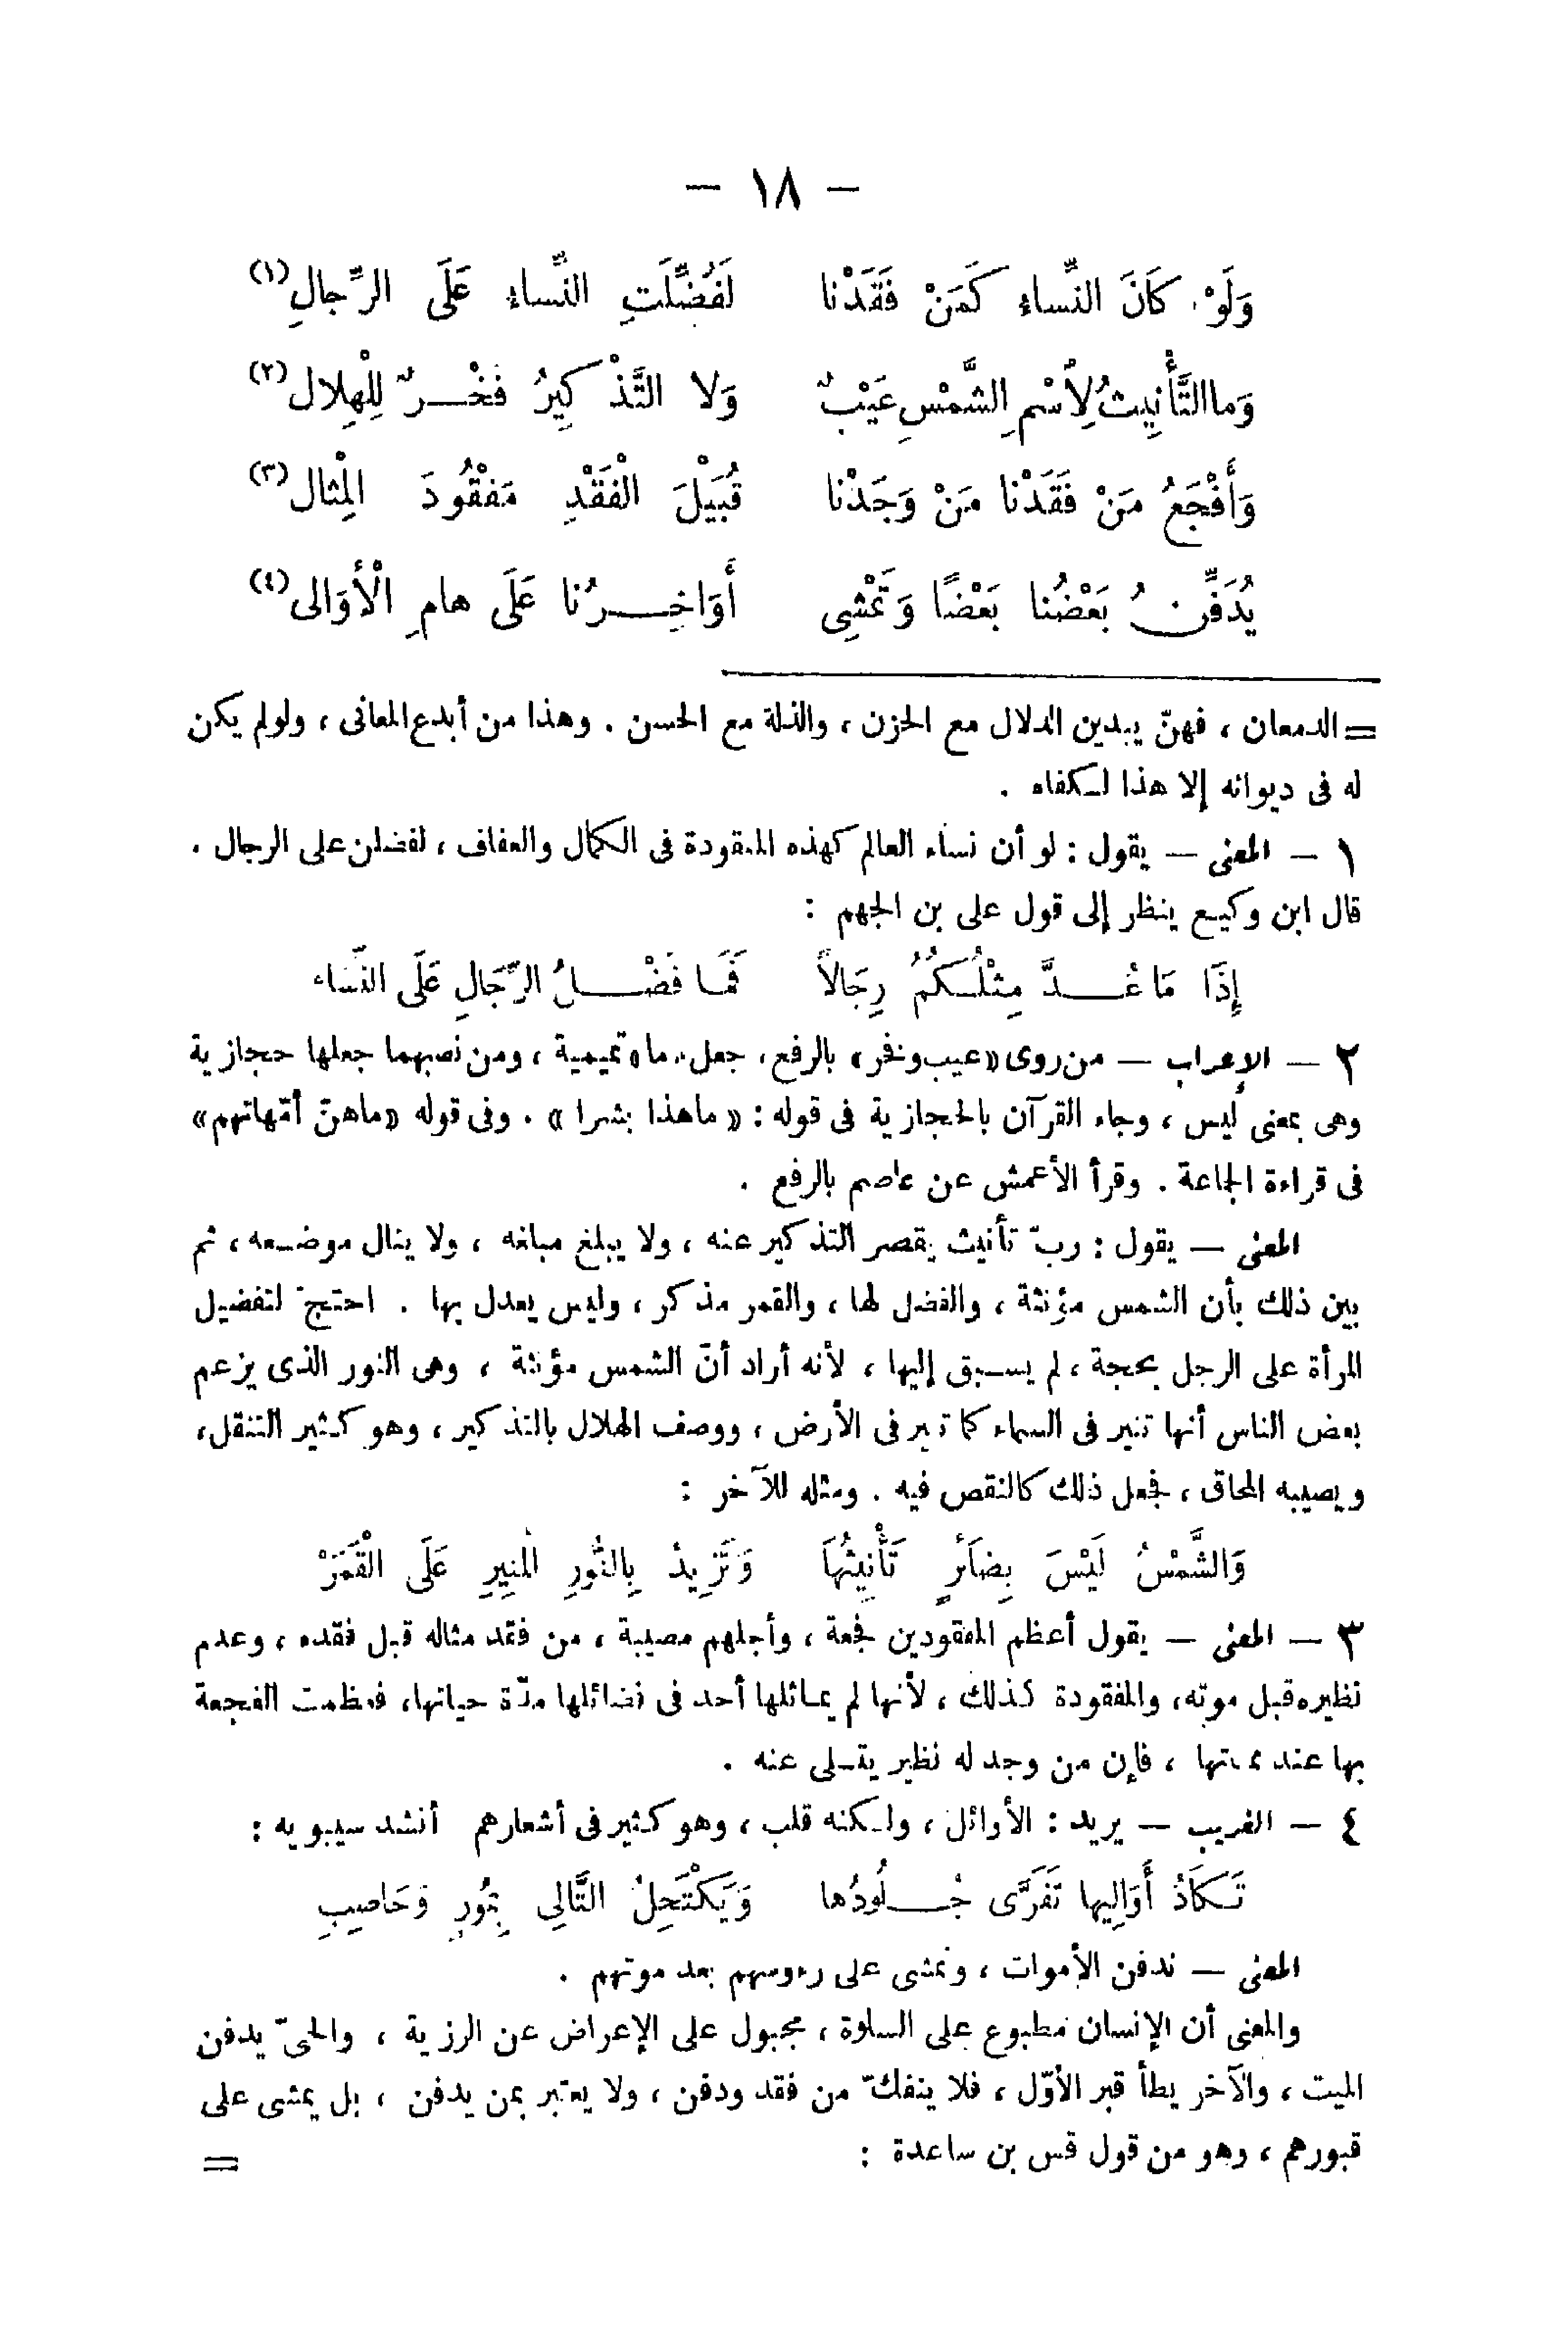 — ١٨ —
وَلَوْ كَانَ النِّساءِ كَمَنْ فَقَدْنا لَفُضِّلَتِ النِّساءُ عَلَى الرِّجالِ (١)
وَما التَّأْنِيثُ لِأَسْمِ الشَّمْسِ عَيْبٌ وَلا التَّذْكِيرُ فَخْرٌ لِلْهِلالِ (٢)
وَأَفْجَعُ مَنْ فَقَدْنا مَنْ وَجَدْنا قُبَيْلَ الْفَقْدِ مَفْقُودَ المِْثال (٣)
يُدَفِّنُ بَعْضُنا بَعْضًا وَتَمْشِى أَوَاخِرُنا عَلَى هامِ الْأَوَالى (٤)
= الدمعان ، فهنّ يبدين الدلال مع الحزن ، والذلة مع الحسن . وهذا من أبدع المعانى ، ولولم يكن
له فى ديوانه إلا هذا لكفاه .
١ — المعنى — يقول : لو أن نساء العالم كهذه المفقودة فى الكمال والعفاف ، لفضلن على الرجال .
قال ابن وكيع ينظر إلى قول على بن الجهم :
إِذَا مَا عُدَّ مِثْلُكُمُ رِجَالاً فَمَا فَضْلُ الرِّجَالِ عَلَى النِّساء
٢ — الإعراب — من روى «عيب وفخر» بالرفع ، جعل «ما» تميمية ، ومن نصبهما جعلها حجازية
وهى بمعنى ليس ، وجاء القرآن بالحجازية فى قوله : « ماهذا بشرا » . وفى قوله «ماهنّ أمّهاتهم»
فى قراءة الجماعة . وقرأ الأعمش عن عاصم بالرفع .
المعنى — يقول : ربّ تأنيث يقصر التذكير عنه ، ولا يبلغ مبلغه ، ولا ينال موضعه ، ثم
بين ذلك بأن الشمس مؤنثة ، والفضل لها ، والقمر مذكر ، وليس يعدل بها . احتجّ لتفضيل
المرأة على الرجل بحجة ، لم يسبق إليها ، لأنه أراد أنّ الشمس مؤنثة ، وهى النور الذى يزعم
بعض الناس أنها تنير فى السماء كما تنير فى الأرض ، ووصف الهلال بالتذكير ، وهو كثير التنقل ،
ويصيبه المحاق ، فجعل ذلك كالنقص فيه . ومثله للآخر :
وَالشَّمْسُ لَيْسَ بِضَائِرٍ تَأْنِيثُهَا وَتَزِيدُ بِالنُّورِ المُنِيرِ عَلَى الْقَمَرْ
٣ — المعنى — يقول أعظم المفقودين فجعة ، وأجلهم مصيبة ، من فقد مثاله قبل فقده ، وعدم
نظيره قبل موته ، والمفقودة كذلك ، لأنها لم يماثلها أحد فى فضائلها مدّة حياتها ، فعظمت الفجعة
بها عند مماتها ، فإن من وجد له نظير يتسلى عنه .
٤ — الغريب — يريد : الأوائل ، ولكنه قلب ، وهو كثير فى أشعارهم أنشد سيبويه :
تَكَادُ أَوَالِيها تَفَرَّى جُلُودُها وَيَكْتَحِلُ التَّالِى بِمُورٍ وَحَاصِبِ
المعنى — ندفن الأموات ، ونمشى على رءوسهم بعد موتهم .
والمعنى أن الإنسان مطبوع على السلوة ، مجبول على الإعراض عن الرزية ، والحىّ يدفن
الميت ، والآخر يطأ قبر الأوّل ، فلا ينفكّ من فقد ودفن ، ولا يعتبر بمن يدفن ، بل يمشى على
قبورهم ، وهو من قول قس بن ساعدة :
=